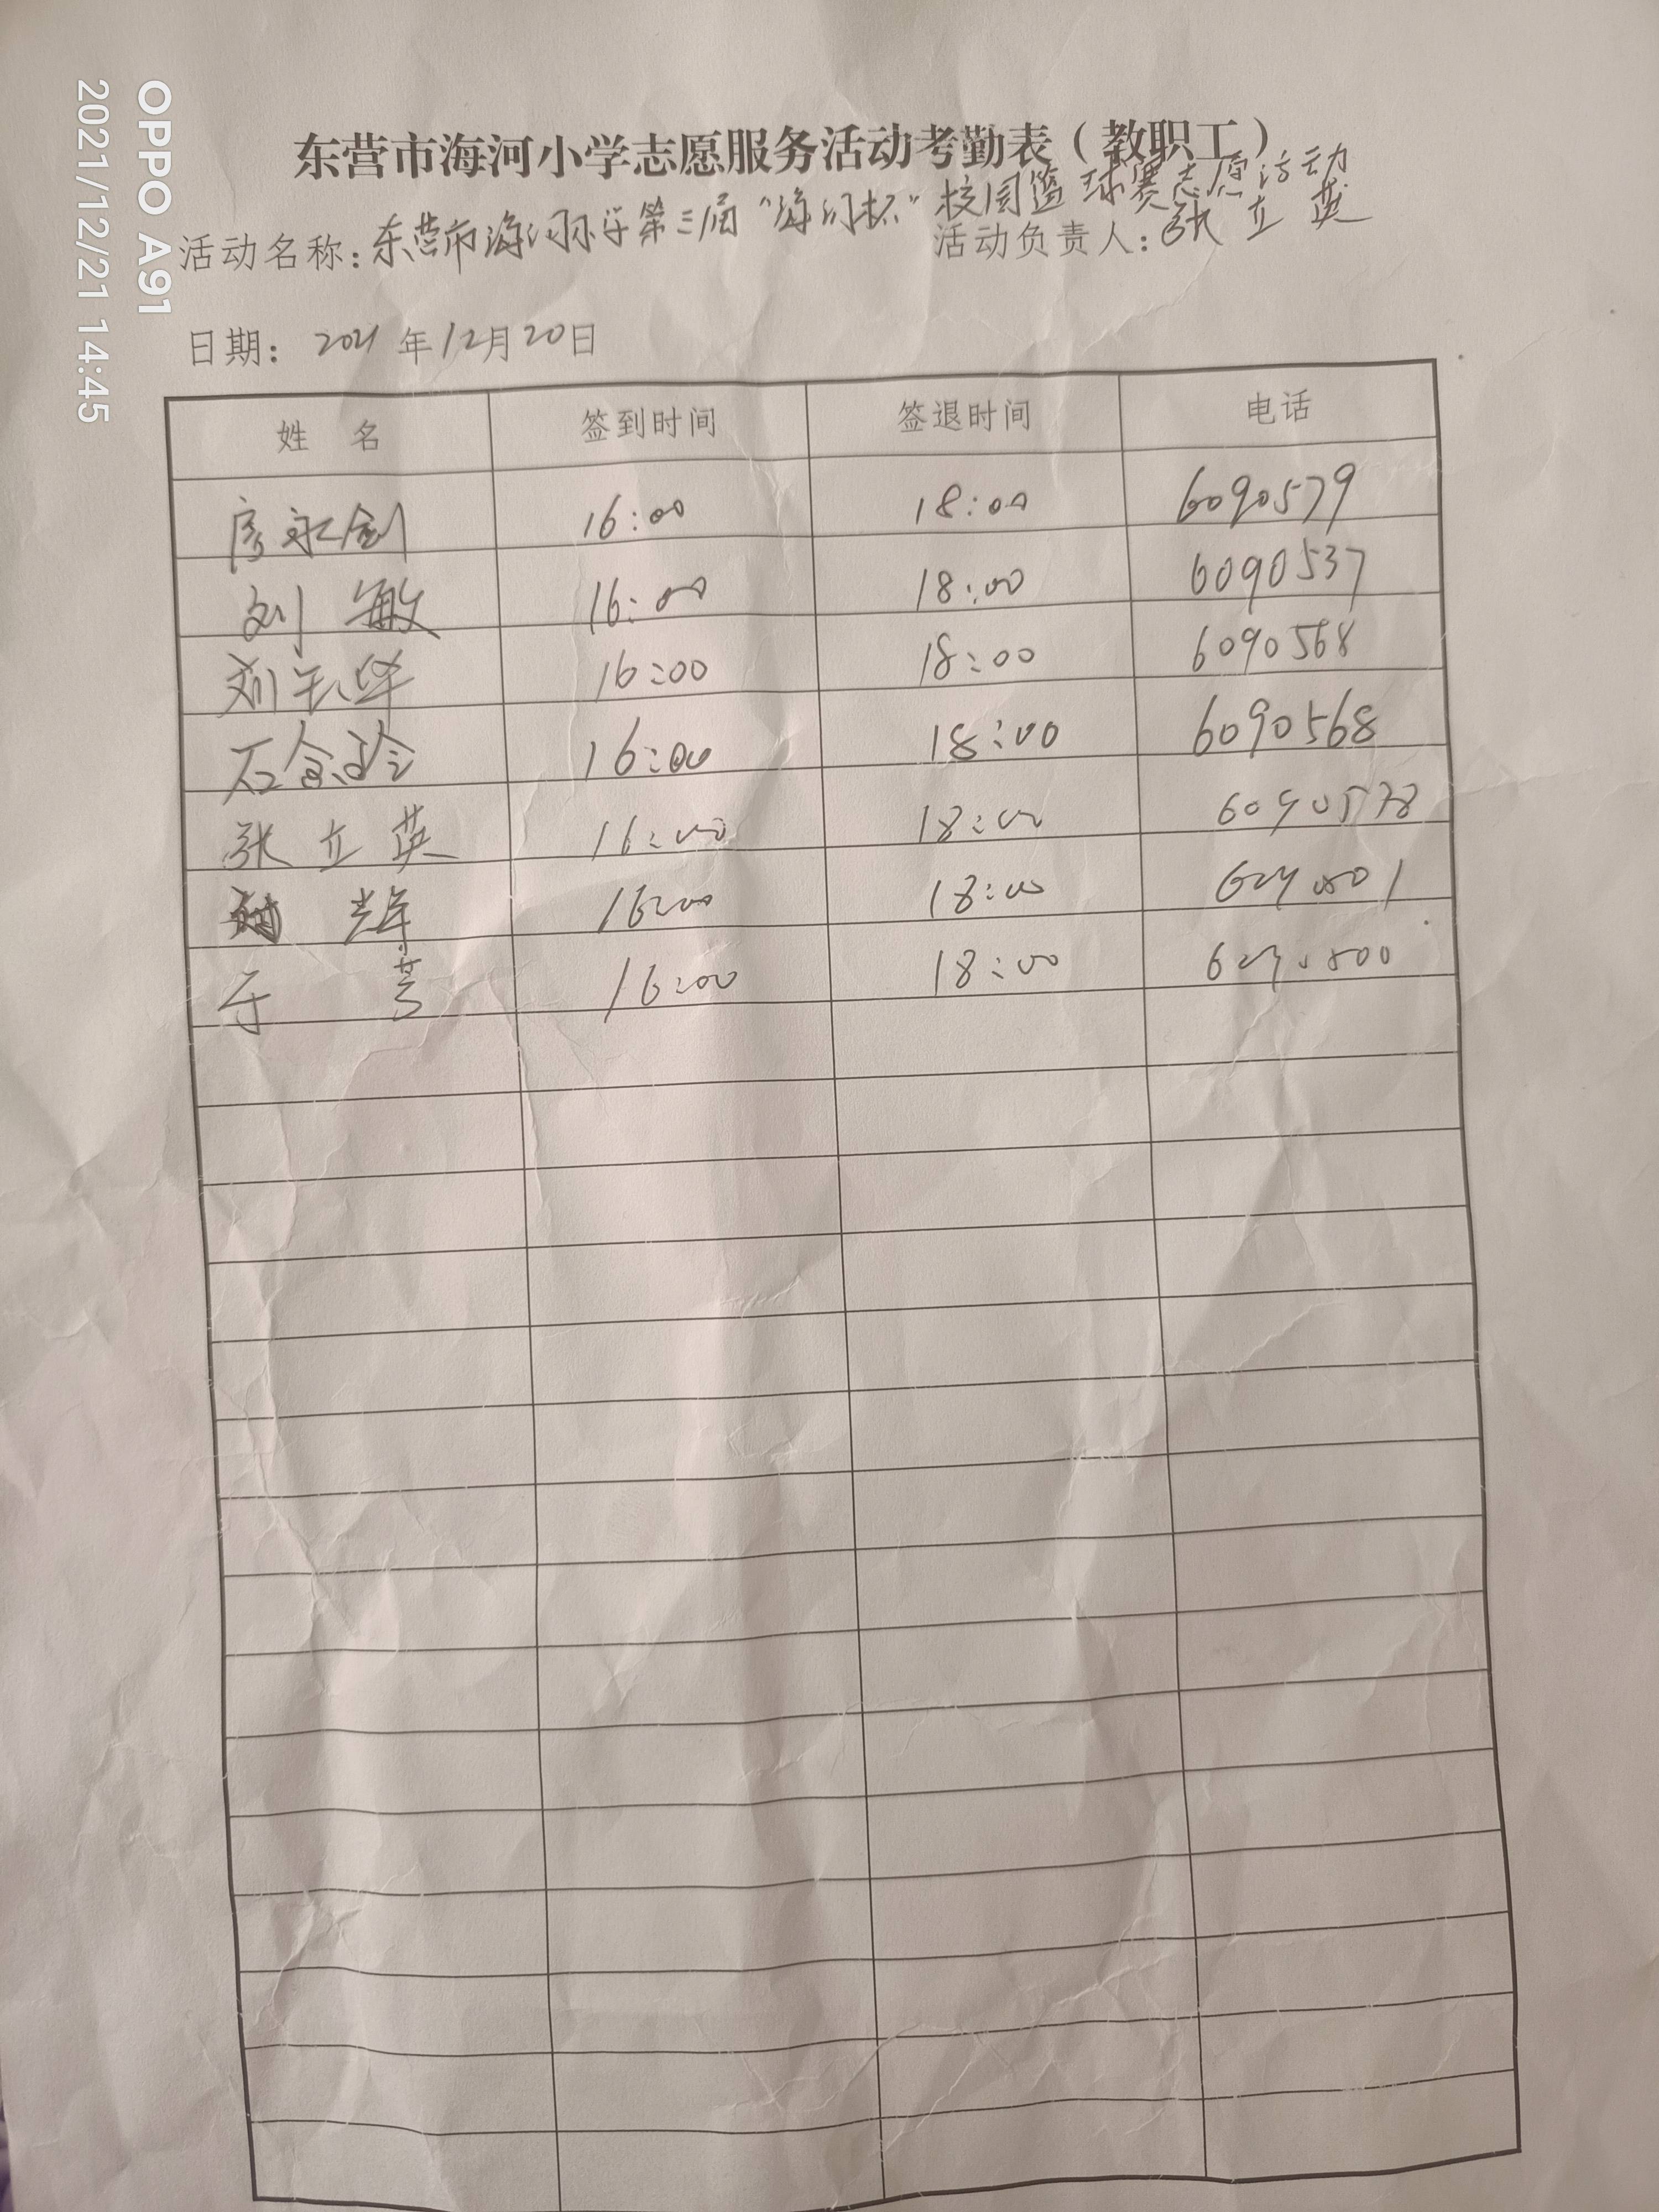 OPPO A91
2021/12/21 14:45
东营市海河小学志愿服务活动考勤表（教职工）
活动名称：东营市海河小学第三届“海河杯”校园篮球赛志愿活动
活动负责人：张立英
日期： 2021 年12月20日
姓 名 签到时间 签退时间 电话
房永剑 16:00 18:00 6090579
刘 敏 16:00 18:00 6090537
刘 16:00 18:00 6090568
石金玲 16:00 18:00 6090568
张立英 16:00 18:00 6090578
辉 16:00 18:00
于 16:00 18:00